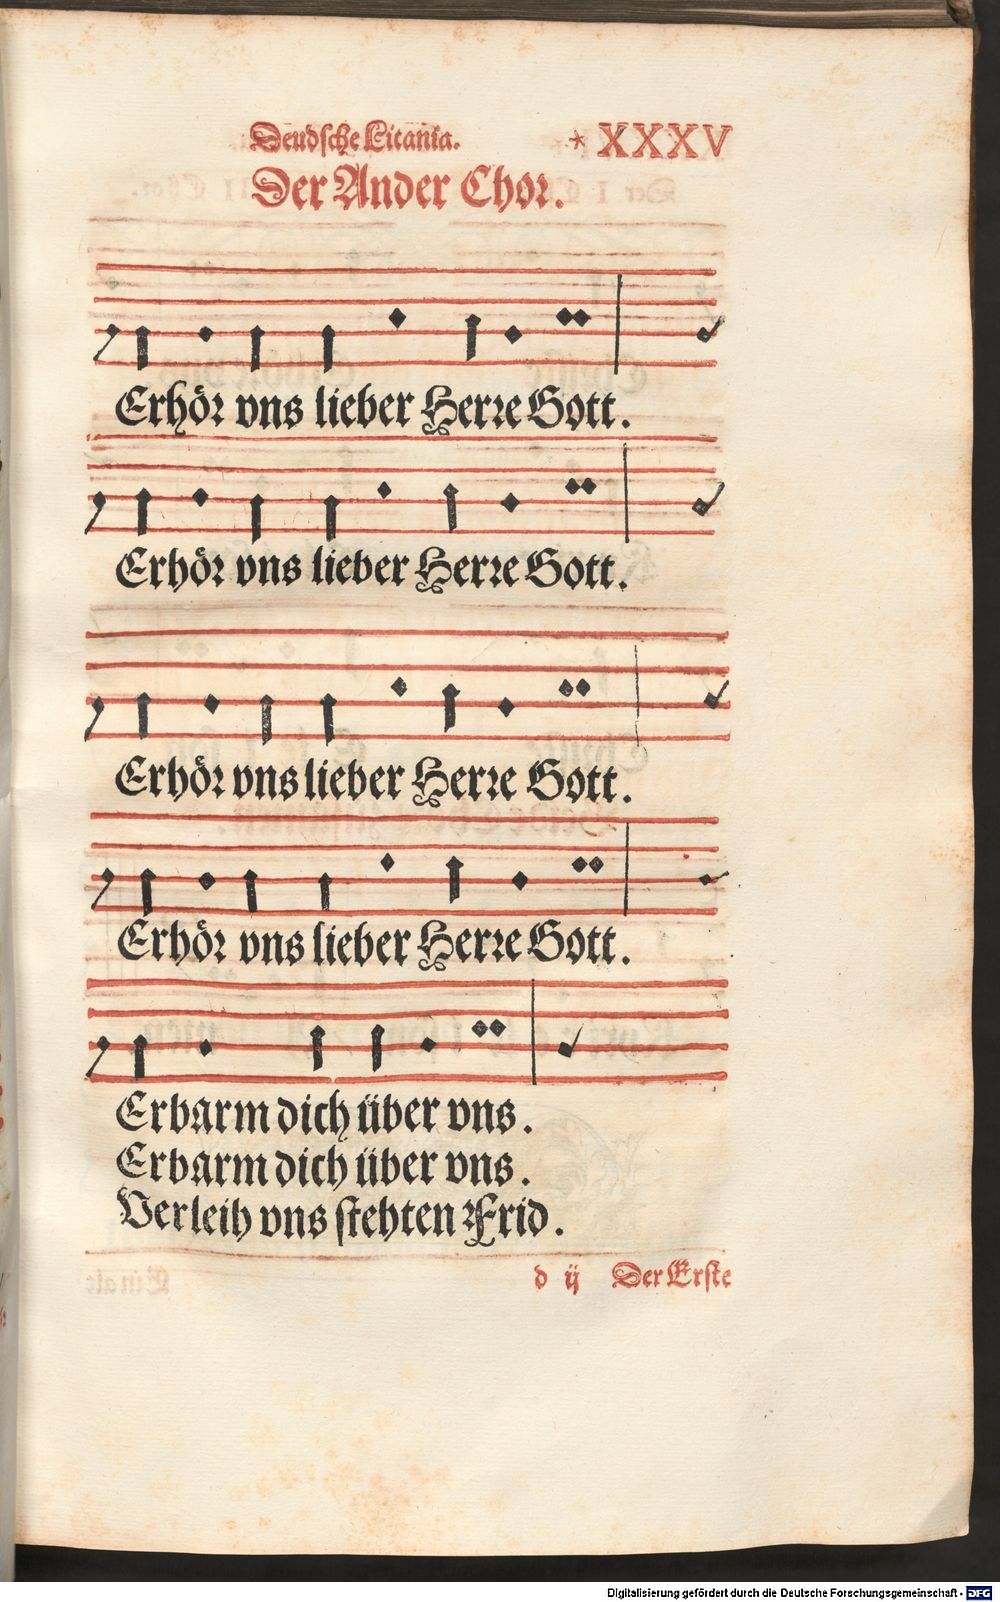 Deudsche Litania. * XXXV
Der Ander Chor.
Erhör vns lieber Herre Gott.
Erhör vns lieber Herre Gott.
Erhör vns lieber Herre Gott.
Erhör vns lieber Herre Gott.
Erbarm dich über vns.
Erbarm dich über vns.
Verleih vns stehten Frid.
d ij Der Erste
Digitalisierung gefördert durch die Deutsche Forschungsgemeinschaft - DFG